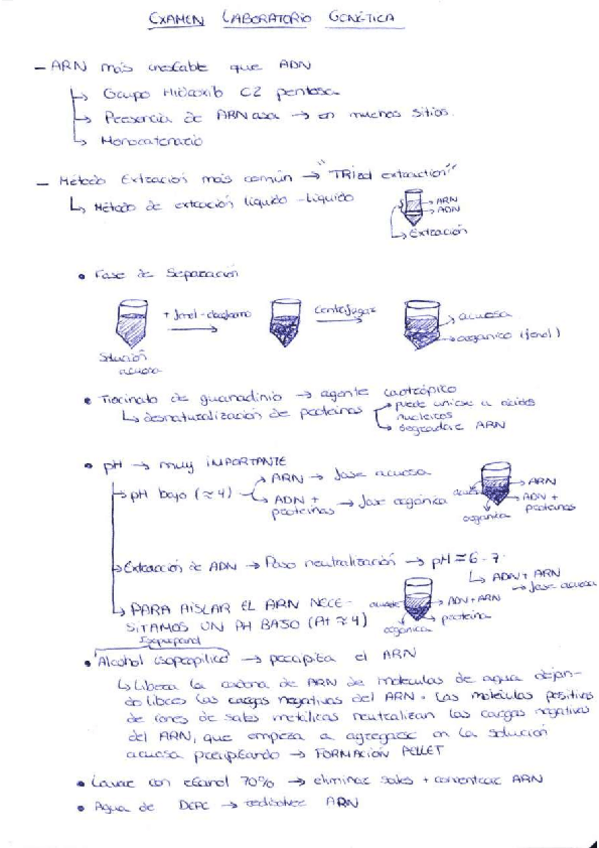 EXAMEN LABORATORIO GENÉTICA
- ARN más inestable que ADN
↳ Grupo Hidroxilo C2 pentosa
↳ Presencia de ARNasa → en muchos sitios.
↳ Monocatenario
- Método Extracción más común → "TRizol extraction"
↳ Método de extracción líquido-líquido
→ ARN
→ ADN
↳ Extracción
• Fase de Separación
+ fenol-cloroformo
Centrifugar
→ acuosa
→ orgánico (fenol)
Solución
acuosa
• Tiocinato de guanadinio → agente caotrópico
↳ desnaturalización de proteínas
→ puede unirse a ácidos
nucleicos
→ degradar ARN
• pH → muy IMPORTANTE
→ pH bajo (≈4)
→ ARN → fase acuosa
→ ADN + proteínas → fase orgánica
acuosa
→ ARN
→ ADN + proteínas
orgánica
→ Extracción de ADN → Paso neutralización → pH ≈ 6-7.
↳ ADN + ARN
→ fase acuosa
↳ PARA AISLAR EL ARN NECE-
SITAMOS UN PH BAJO (PH ≈ 4)
acuosa
→ ADN + ARN
→ proteína
orgánica
Isopropanol
• Alcohol isopropílico → precipita el ARN
↳ Libera la cadena de ARN de moléculas de agua dejan-
do libres las cargas negativas del ARN. Las moléculas positivas
de iones de sales metálicas neutralizan las cargas negativas
del ARN, que empieza a agregarse en la solución
acuosa precipitando → FORMACIÓN PELLET
• Lavar con etanol 70% → eliminar sales + concentrar ARN
• Agua de DEPC → redisolver ARN